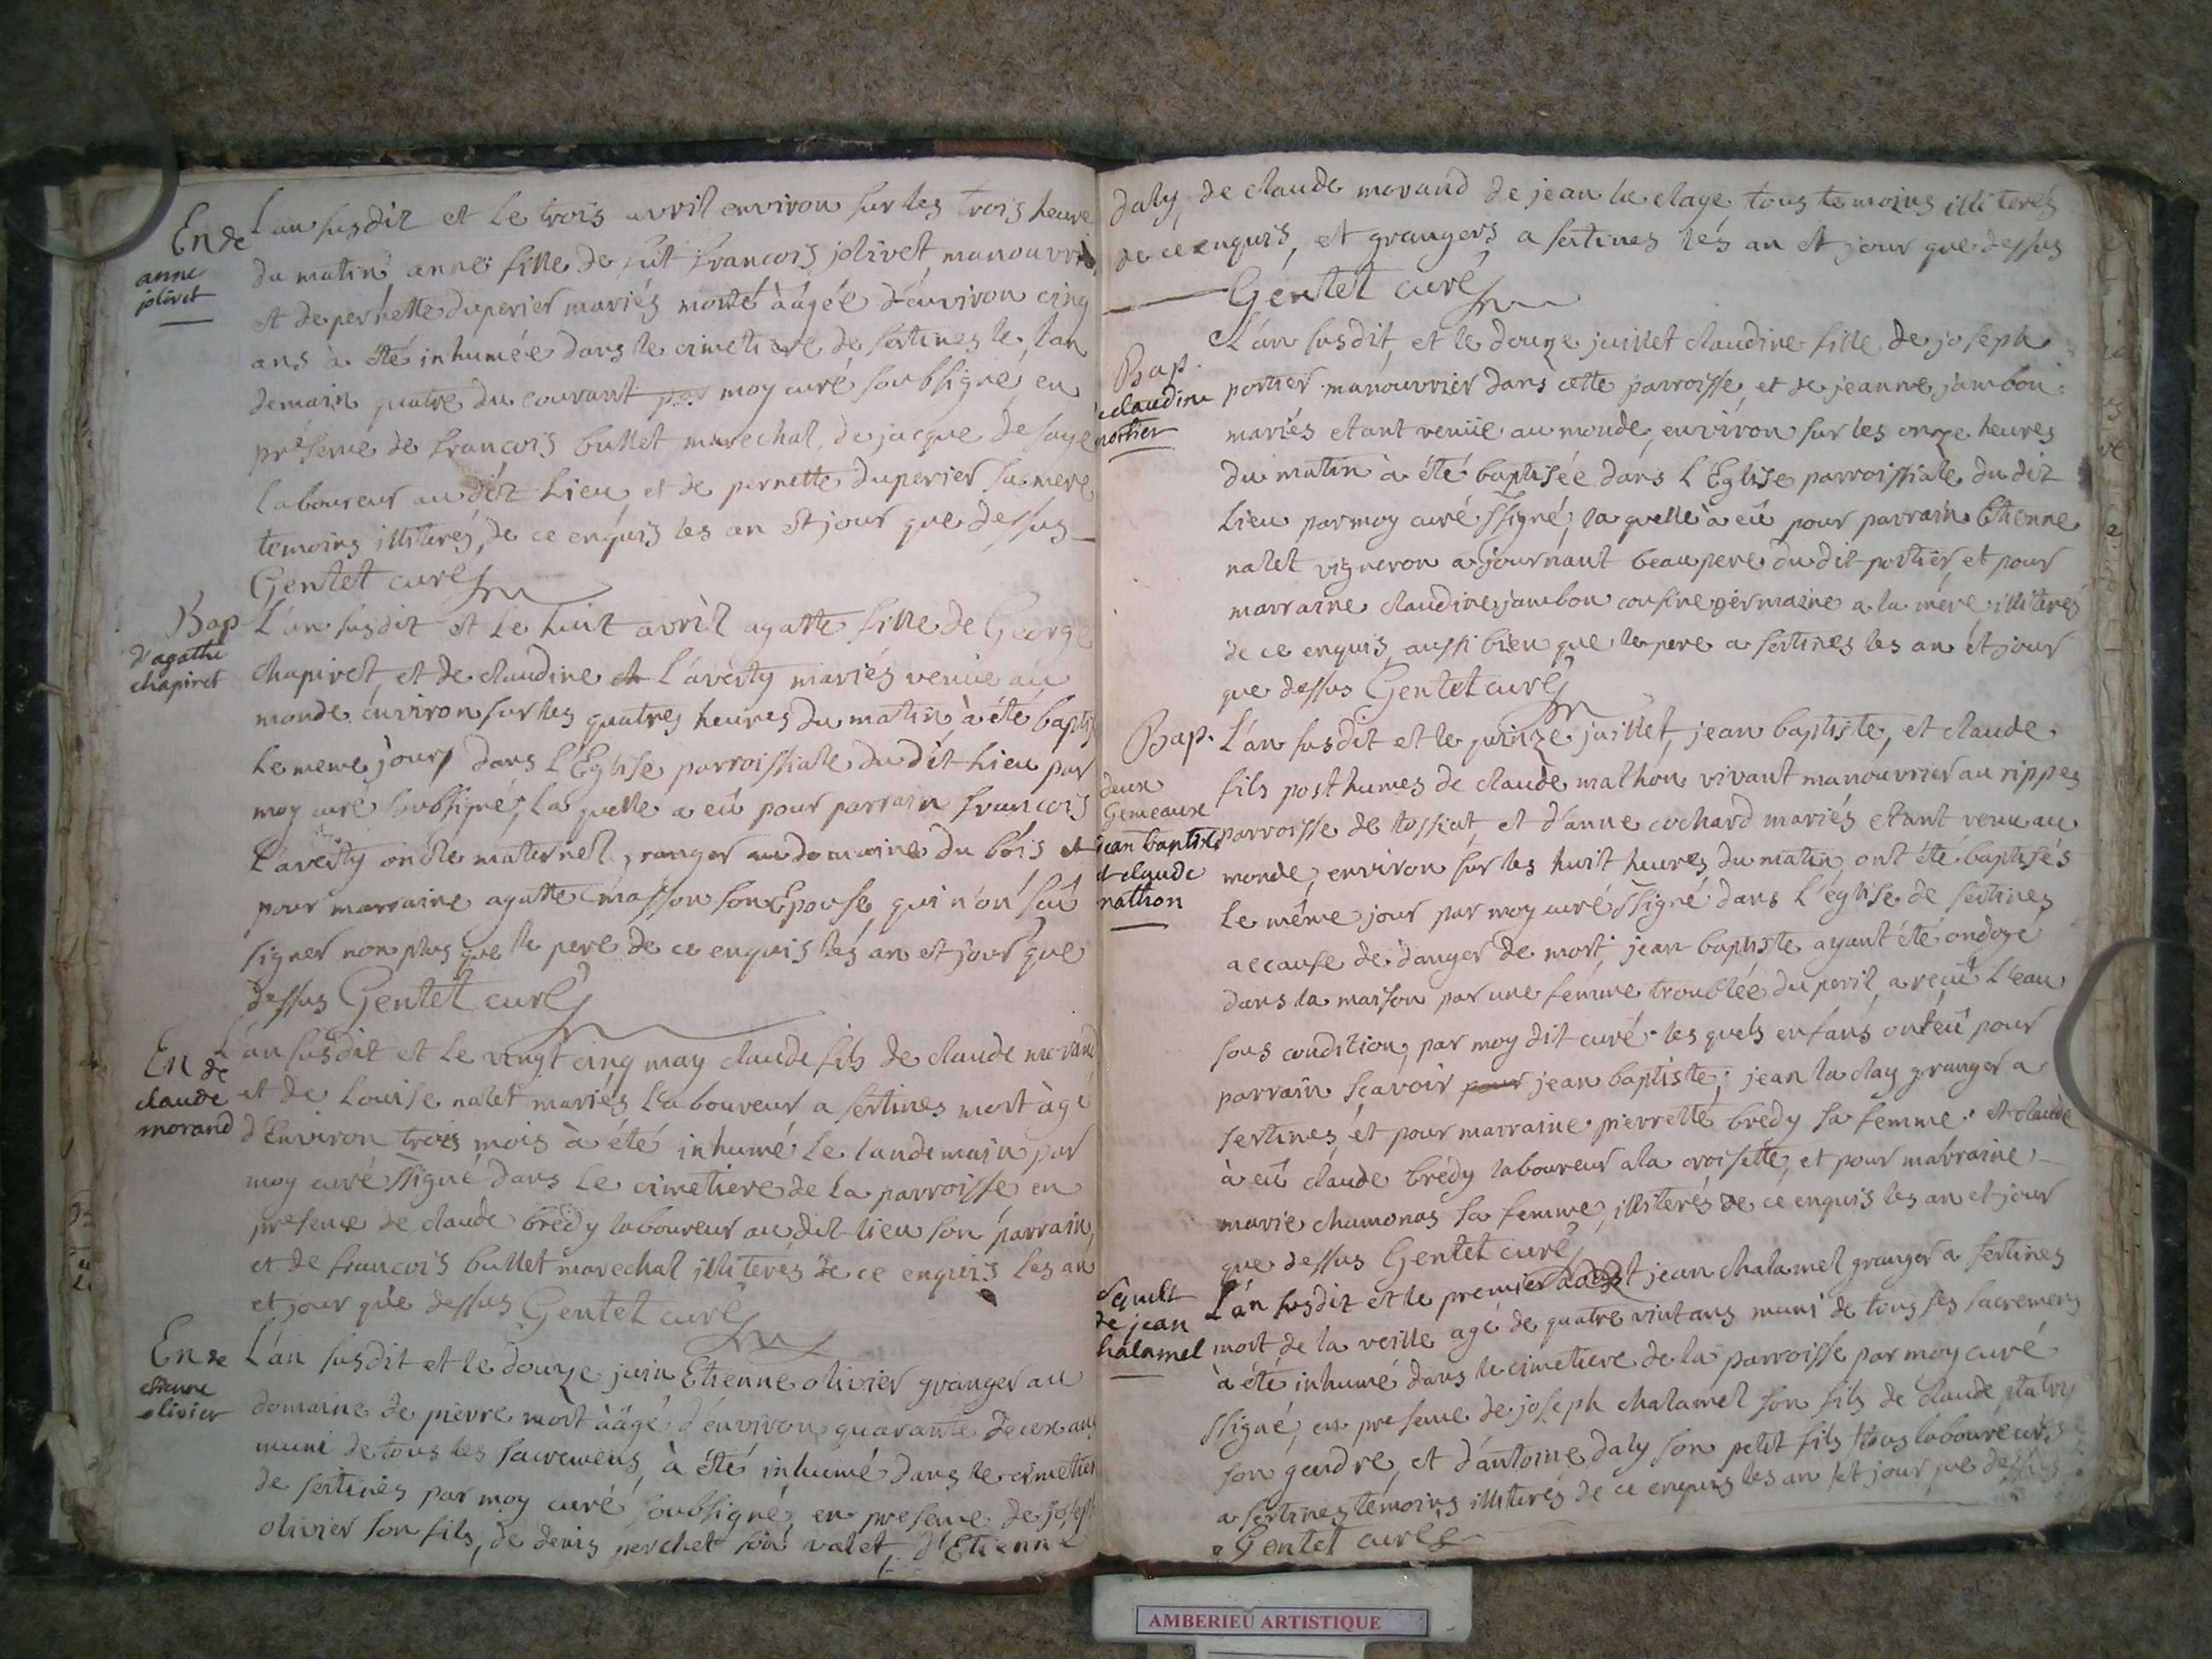 En de
anne
jolivet
L'an susdit et le trois avril environ sur les trois heure
du matin anne fille de fût francois jolivet, manouvrie
et de pernette duperier mariés morte àâgée d'environ cinq
ans à été inhumée dans le cimetiere de sertines le lan
demain quatre du courant par moy curé soubsigné, en
présence de francois bullet marechal, de jacque desaye
laboureur au dit lieu, et de pernette duperier sa mere
temoins illiterés, de ce enquis les an et jour que dessus
Gentet curé
Bap
d'agathe
chapiret
L'an susdit et le huit avril agatte fille de George
chapiret, et de claudine ch l'averty mariés venüe au
monde environ sur les quatres heures du matin, à été bapti
le meme jour, dans l'Eglise parroissiale du dit lieu par
moy curé soubsigné; la quelle a eû pour parrain francois
l'averty oncle maternel granger au domaine du bois et
pour marraine agatte masson son Epouse, qui n'on sçû
signer non plus que le pere de ce enquis les an et jour que
dessus Gentet curé
En de
claude
morand
L'an susdit et le vingt cinq may claude fils de claude morand
et de Louise nalet mariés laboureur a sertines mort àgé
d'Environ trois mois à été inhumé le landemain par
moy curé ssigné dans le cimetiere de la parroisse, en
presence de claude bredy laboureur au dit lieu son parrain,
et de francois bullet marechal illiterés de ce enquis les an
et jour que dessus Gentet curé
En de
etienne
olivier
L'an susdit et le douze juin Etienne olivier granger au
domaine de pierre mort àâgé d'environ quarante deux ans
muni de tous les sacremens, à été inhumé dans le cimetier
de sertines par moy curé soubsigné, en presence de joseph
olivier son fils, de denis perchet son valet, d'Etienne
daly, de claude morand de jean la claye, tous temoins illiterés
de ce enquis, et grangers, a sertines lés an et jour que dessus
Gentet curé
Bap.
claudine
portier
L'an susdit, et le douze juillet claudine fille de joseph
portier manouvrier dans cette parroisse, et de jeanne jambon
mariés etant venüe au monde, environ sur les onze heures
du matin à été baptisée dans l'Eglise parroissiale du dit
lieu par moy curé ssigné; la quelle à eû pour parrain Etienne
nalet vigneron a journant beaupere du dit portier, et pour
marraine claudine jambon cousine germaine a la mere, illiterés
de ce enquis, aussi bien que le pere a sertines les an et jour
que dessus Gentet curé
Bap.
deux
Gemeaux
jean baptiste
et claude
mathon
L'an susdit et le quinze juillet, jean baptiste, et claude
fils posthumes de claude mathon vivant manouvrier au rippes
parroisse de tossiat, et d'anne cochard mariés etant venu au
monde, environ sur les huit heures du matin, ont été baptisés
le même jour par moy curé ssigné dans l'église de sertines
a ecause de danger de mort jean baptiste ayant été ondoyé
dans la maison par une femme troublée du peril, a reçû l'eau
sous condition, par moy dit curé. les quels enfans ont eû pour
parrain sçavoir pour jean baptiste; jean la clay granger a
sertines, et pour marraine pierrette bredy sa femme. et claude
à eû claude brédy laboureur ala croisette, et pour marraine
marie chamonas sa femme, illiterés de ce enquis les an et jour
que dessus Gentet curé
sepult
de jean
chalamel
L'an susdit et le premier aoust jean chalamel granger a sertines
mort de la veille agé de quatre vint ans muni de tous ses sacremens
à été inhumé dans le cimetiere de la parroisse par moy curé
ssigné, en presence de joseph chalamel son fils de claude
son gendre, et d'antoine daly son petit fils tous laboureurs
a sertines temoins illiterés de ce enquis les an et jour que dessus
Gentet curé
AMBERIEU ARTISTIQUE